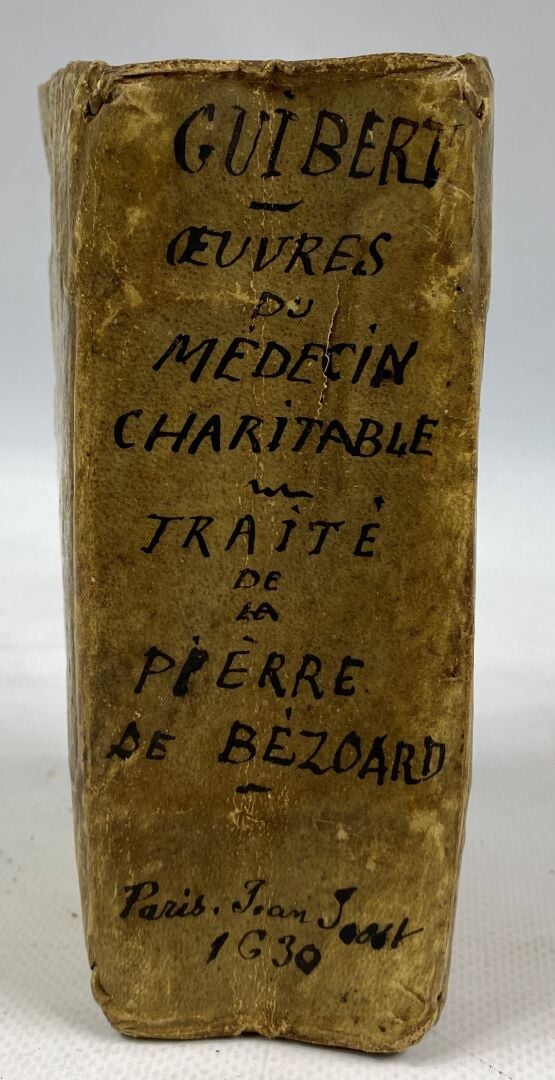 GUIBERT
ŒUVRES
DU
MÉDECIN
CHARITABLE
TRAITÉ
DE
LA
PIÈRRE
DE BÉZOARD
Paris. Jean Jost
1630